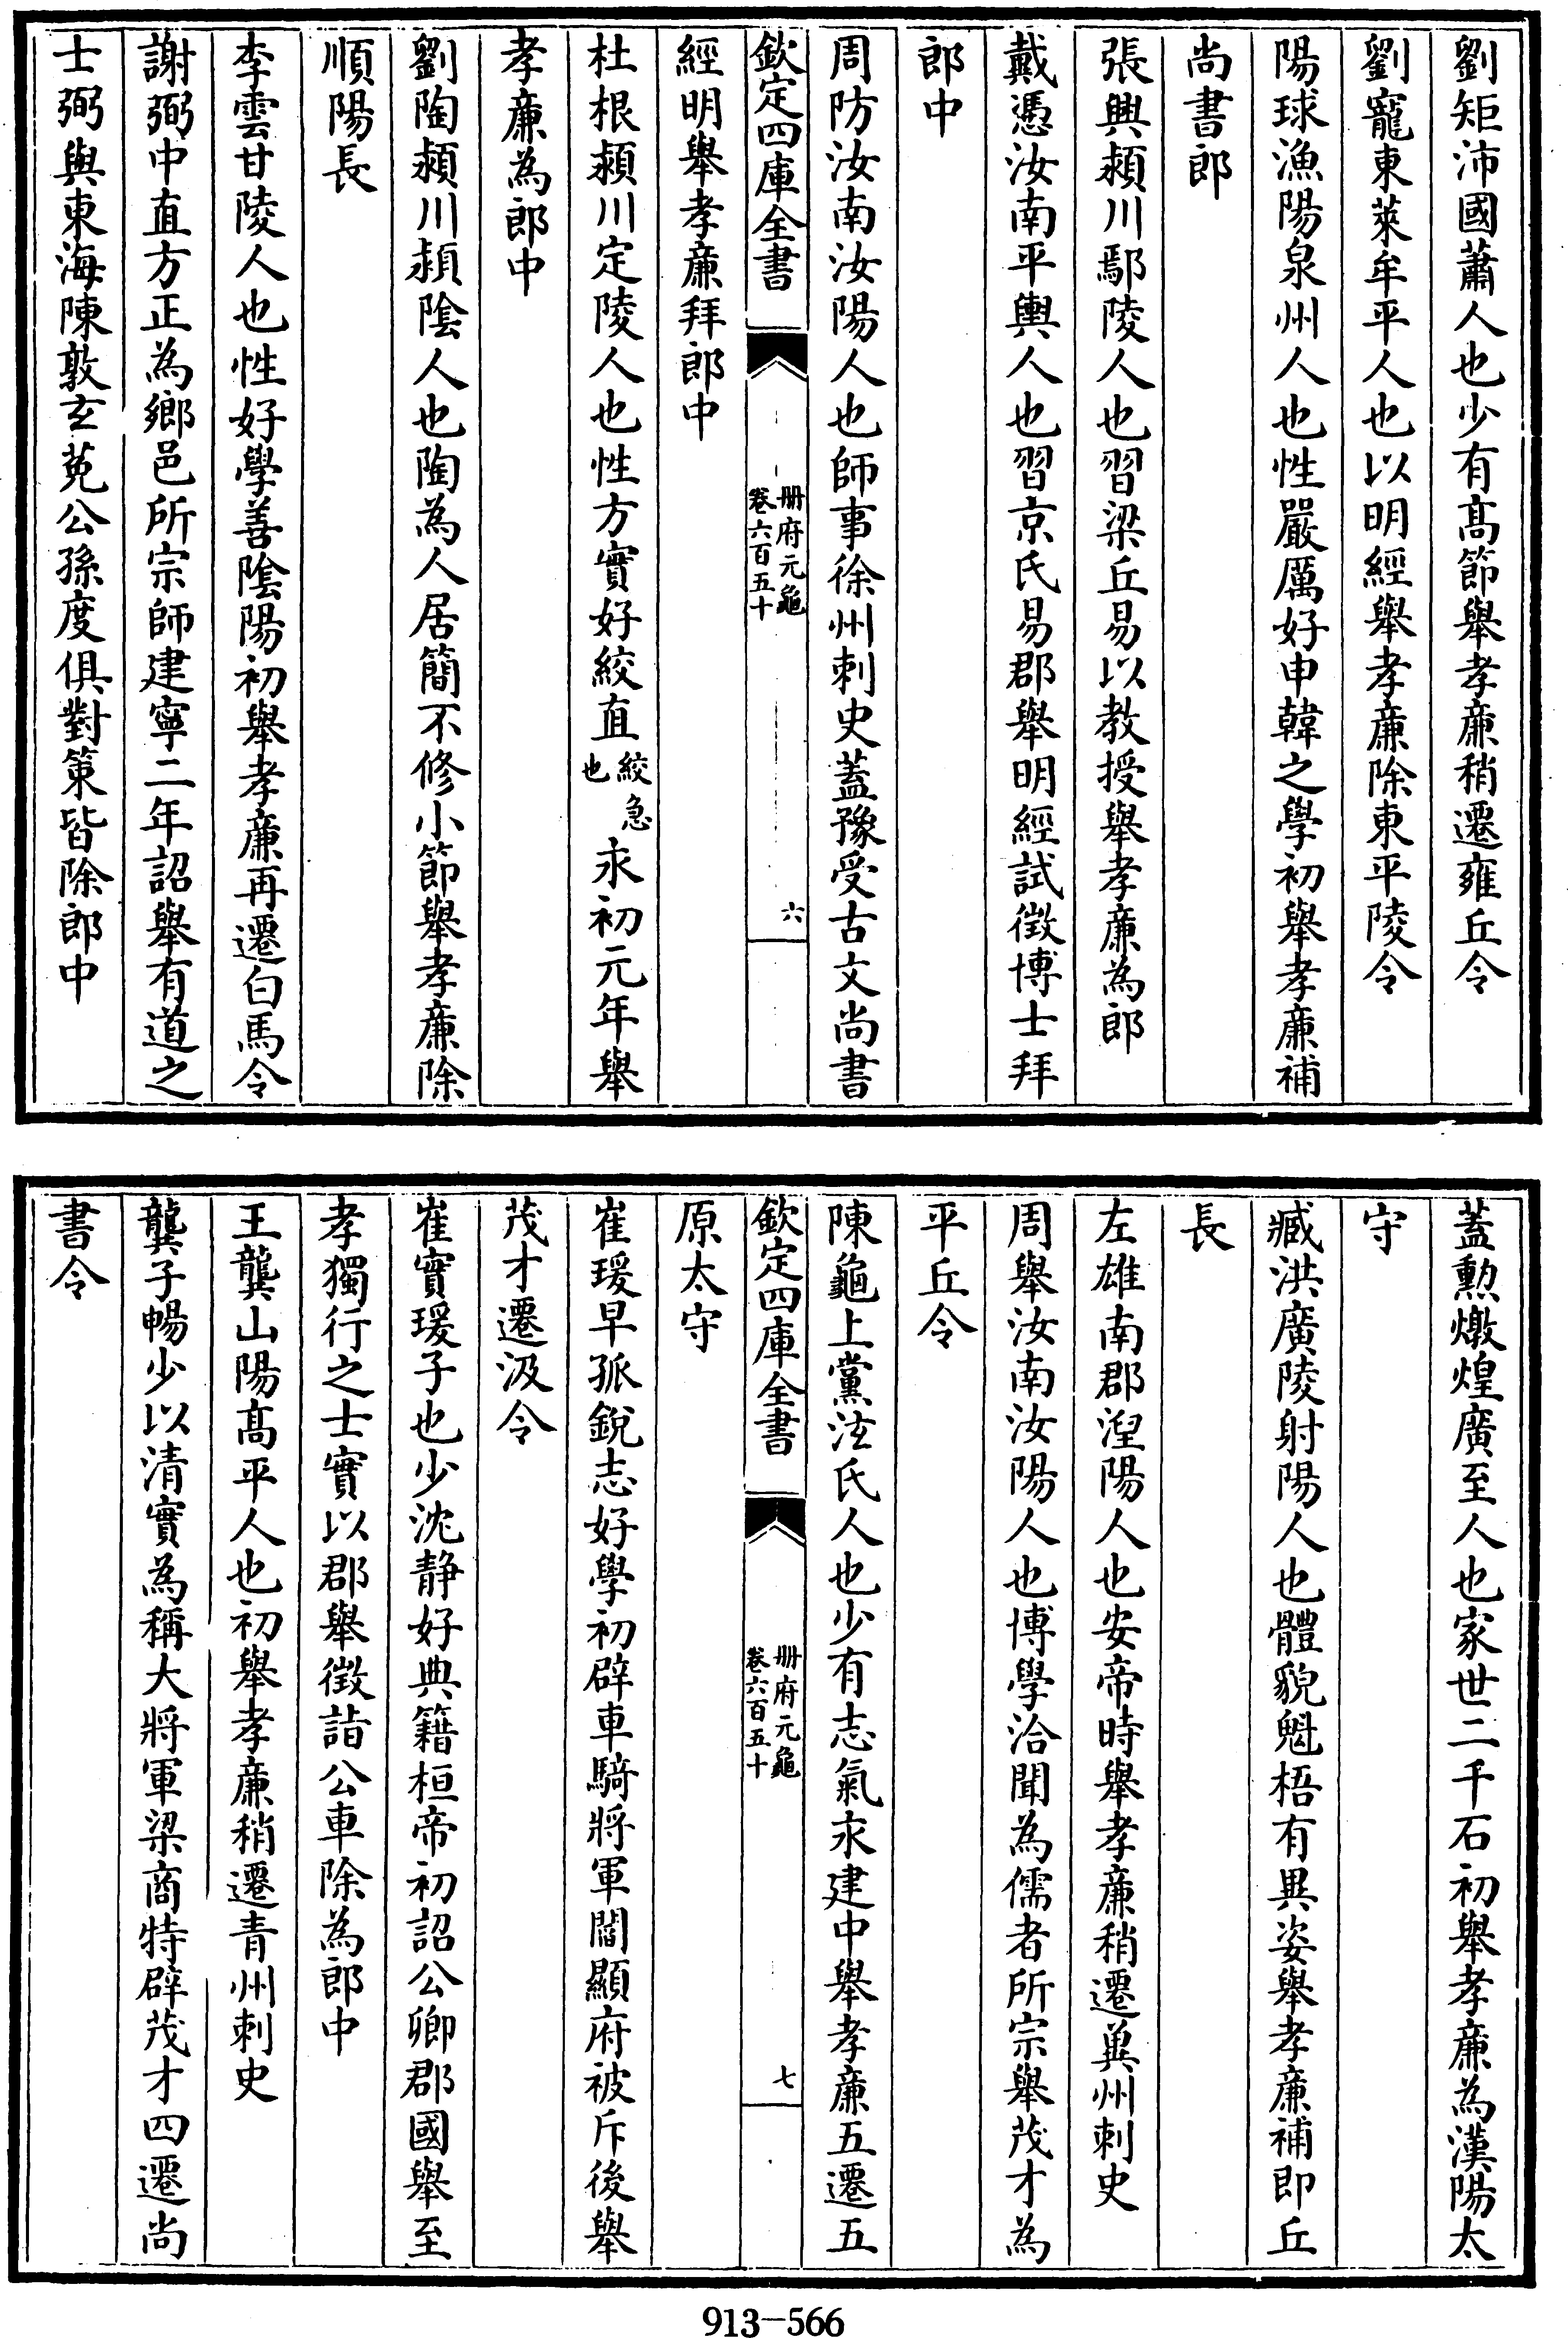 劉矩沛國蕭人也少有髙節舉孝廉稍遷雍丘令
劉寵東萊牟平人也以明經舉孝廉除東平陵令
陽球漁陽泉州人也性嚴厲好申韓之學初舉孝廉補
尚書郎
張興潁川鄢陵人也習梁丘易以教授舉孝廉為郎
戴憑汝南平輿人也習京氏易郡舉明經試徵博士拜
郎中
周防汝南汝陽人也師事徐州刺史蓋豫受古文尚書
欽定四庫全書
册府元龜
卷六百五十
六
經明舉孝廉拜郎中
杜根潁川定陵人也性方實好絞直絞急也永初元年舉
孝廉為郎中
劉陶潁川潁陰人也陶為人居簡不修小節舉孝廉除
順陽長
李雲甘陵人也性好學善陰陽初舉孝廉再遷白馬令
謝弼中直方正為鄉邑所宗師建寧二年詔舉有道之
士弼與東海陳敦玄菟公孫度俱對策皆除郎中
蓋勲燉煌廣至人也家世二千石初舉孝廉為漢陽太
守
臧洪廣陵射陽人也體貌魁梧有異姿舉孝廉補即丘
長
左雄南郡湼陽人也安帝時舉孝廉稍遷兾州刺史
周舉汝南汝陽人也博學洽聞為儒者所宗舉茂才為
平丘令
陳龜上黨泫氏人也少有志氣永建中舉孝廉五遷五
欽定四庫全書
册府元龜
卷六百五十
七
原太守
崔瑗早孤銳志好學初辟車騎將軍閻顯府被斥後舉
茂才遷汲令
崔實瑗子也少沈静好典籍桓帝初詔公卿郡國舉至
孝獨行之士實以郡舉徵詣公車除為郎中
王龔山陽髙平人也初舉孝廉稍遷青州刺史
龔子暢少以清實為稱大將軍梁商特辟茂才四遷尚
書令
913-566